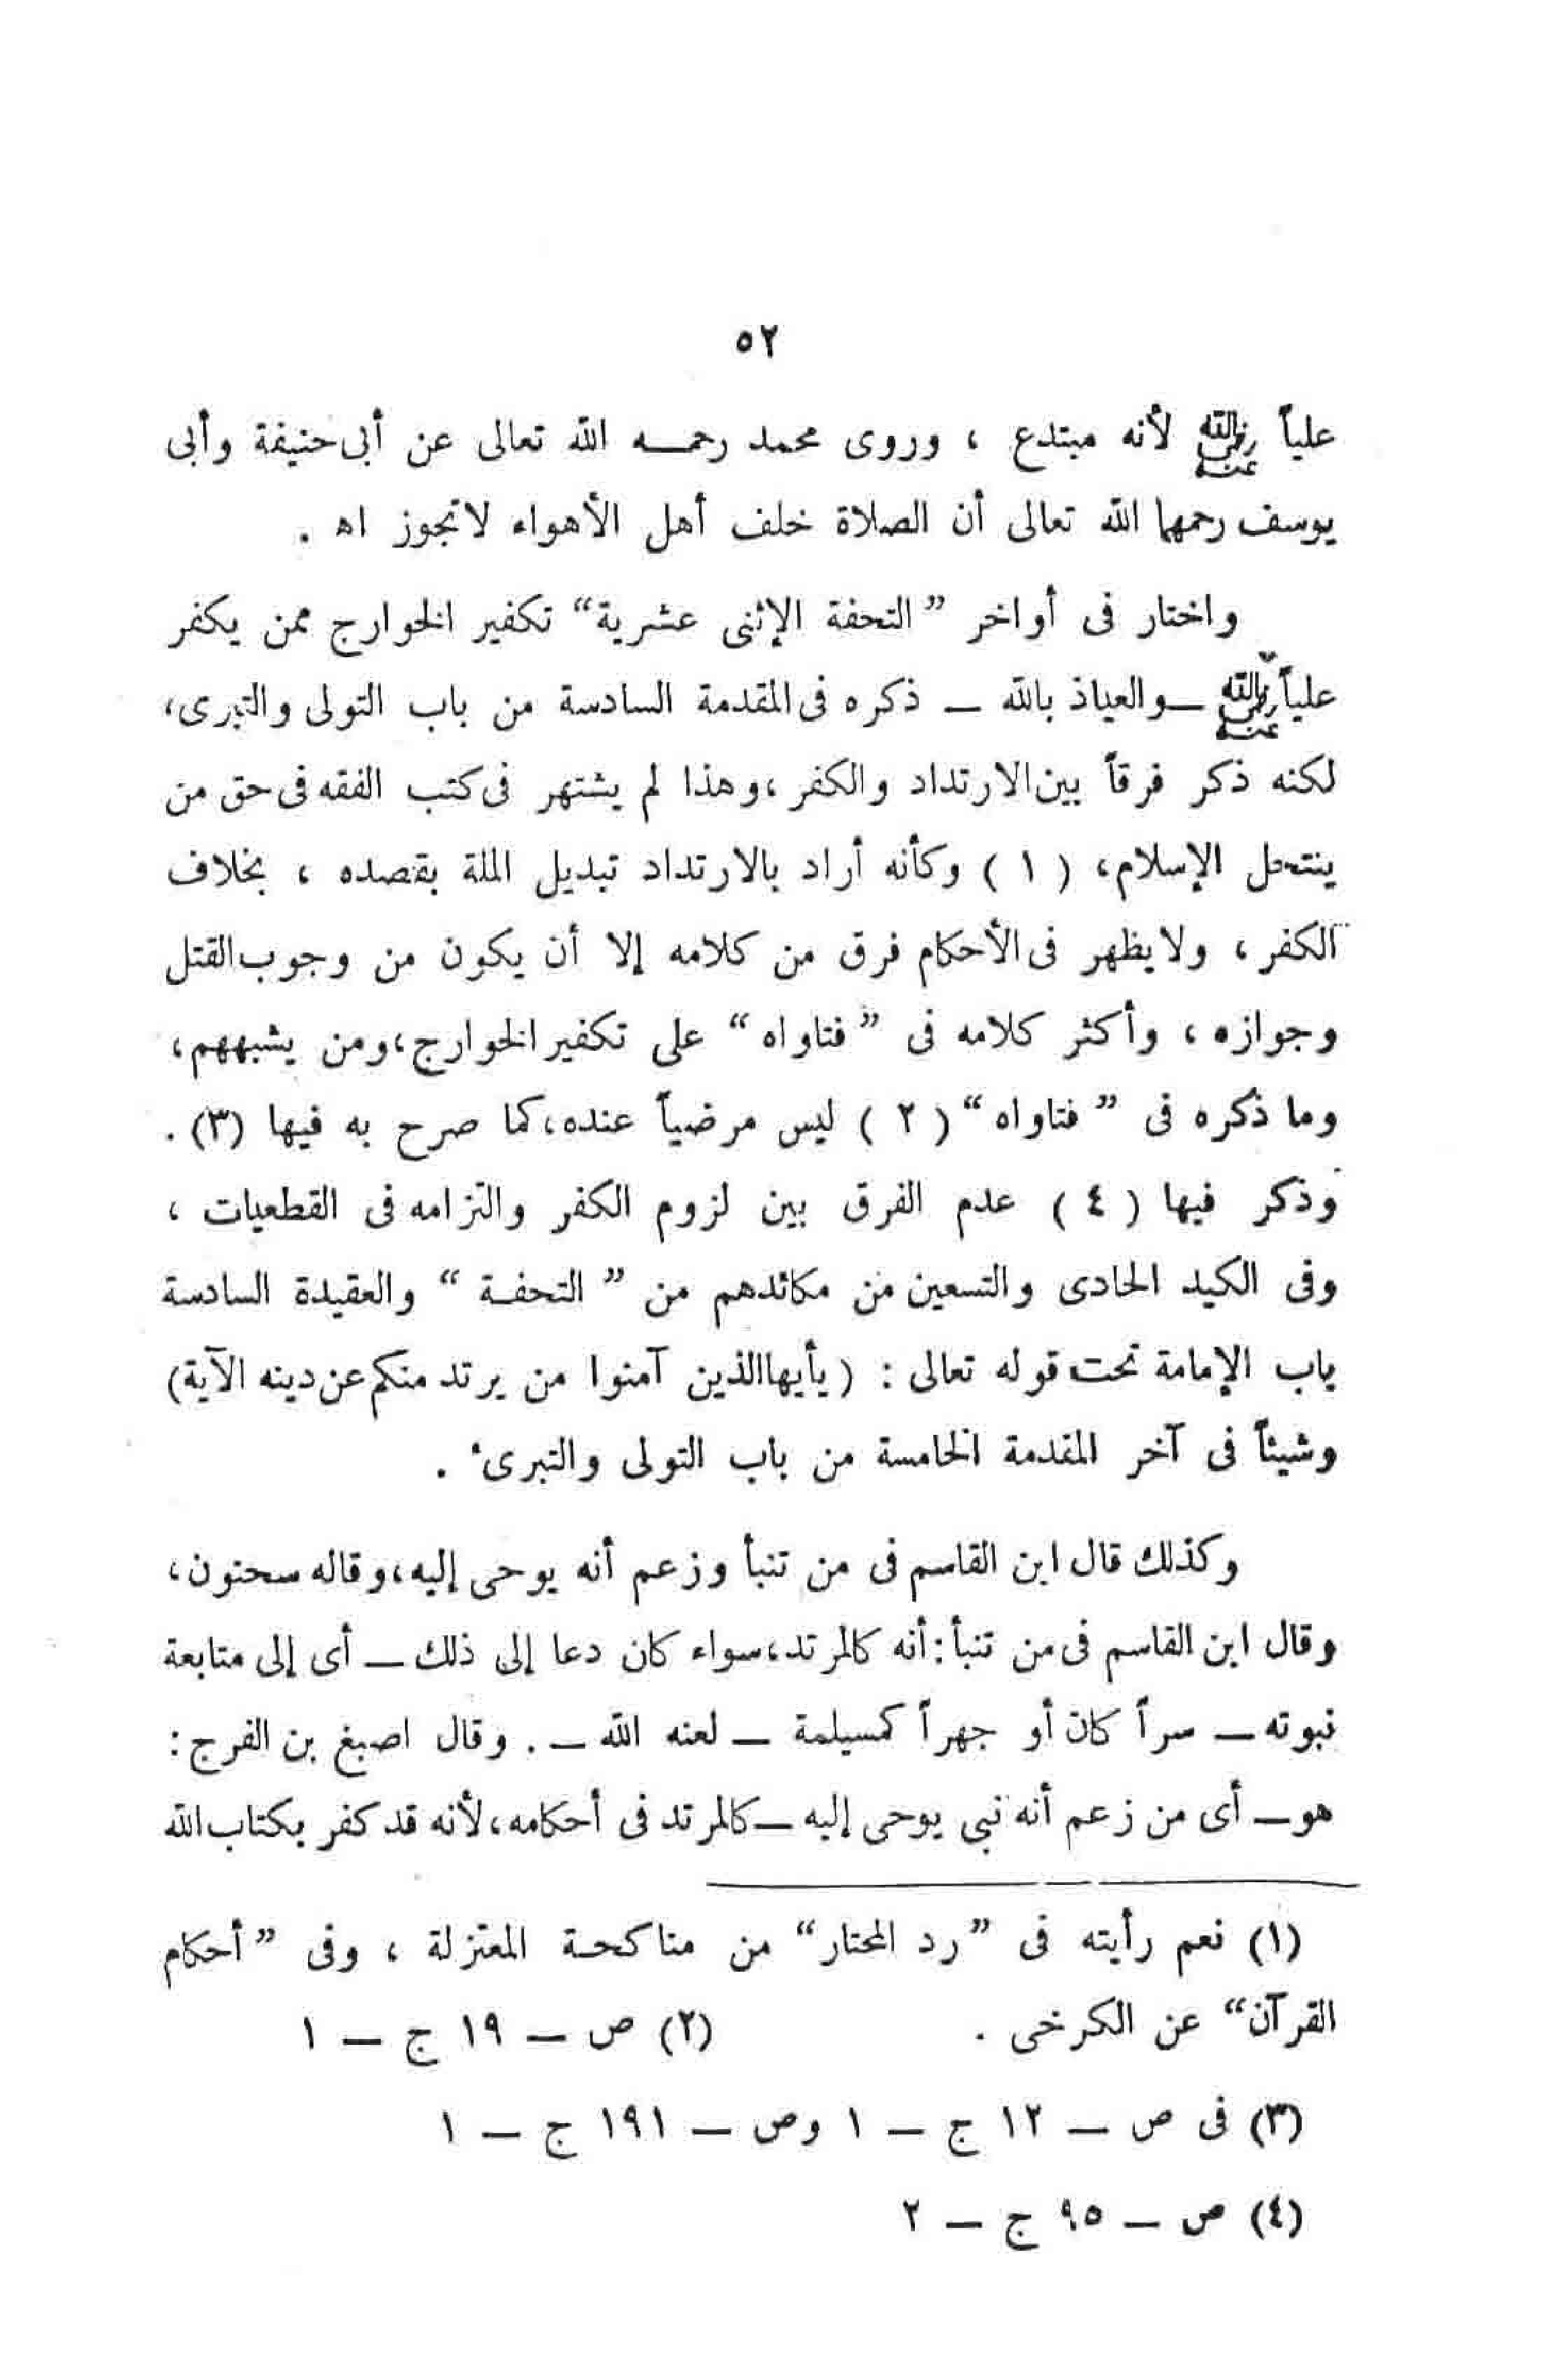 ٥٢
علياً رضي الله عنه لأنه مبتدع ، وروى محمد رحمـــه الله تعالى عن أبى حنيفة وأبى
يوسف رحمهما الله تعالى أن الصلاة خلف أهل الأهواء لا تجوز اه .
واختار فى أواخر ”التحفة الإثنى عشرية“ تكفير الخوارج ممن يكفر
علياً رضي الله عنه ــ والعياذ بالله ــ ذكره فى المقدمة السادسة من باب التولى والتبرى،
لكنه ذكر فرقاً بين الارتداد والكفر ، وهذا لم يشتهر فى كتب الفقه فى حق من
ينتحل الإسلام، ( ١ ) وكأنه أراد بالارتداد تبديل الملة بقصده ، بخلاف
الكفر ، ولا يظهر فى الأحكام فرق من كلامه إلا أن يكون من وجوب القتل
وجوازه ، وأكثر كلامه فى ” فتاواه “ على تكفير الخوارج، ومن يشبههم،
وما ذكره فى ” فتاواه “ ( ٢ ) ليس مرضياً عنده، كما صرح به فيها (٣) .
وذكر فيها ( ٤ ) عدم الفرق بين لزوم الكفر والتزامه فى القطعيات ،
وفى الكيد الحادى والتسعين من مكائدهم من ” التحفـة “ والعقيدة السادسة
باب الإمامة تحت قوله تعالى : ( يأيها الذين آمنوا من يرتد منكم عن دينه الآية)
وشيئاً فى آخر المقدمة الخامسة من باب التولى والتبرىء .
وكذلك قال ابن القاسم فى من تنبأ وزعم أنه يوحى إليه، وقاله سحنون،
وقال ابن القاسم فى من تنبأ : أنه كالمرتد، سواء كان دعا إلى ذلك ــ أى إلى متابعة
نبوته ــ سراً كان أو جهراً كمسيلمة ــ لعنه الله ــ . وقال اصبغ بن الفرج :
هو ــ أى من زعم أنه نبى يوحى إليه ــ كالمرتد فى أحكامه، لأنه قد كفر بكتاب الله
(١) نعم رأيته فى ”رد المحتار“ من مناكحـة المعتزلة ، وفى ”أحكام
القرآن“ عن الكرخى . (٢) ص ــ ١٩ ج ــ ١
(٣) فى ص ــ ١٢ ج ــ ١ وص ــ ١٩١ ج ــ ١
(٤) ص ــ ٩٥ ج ــ ٢